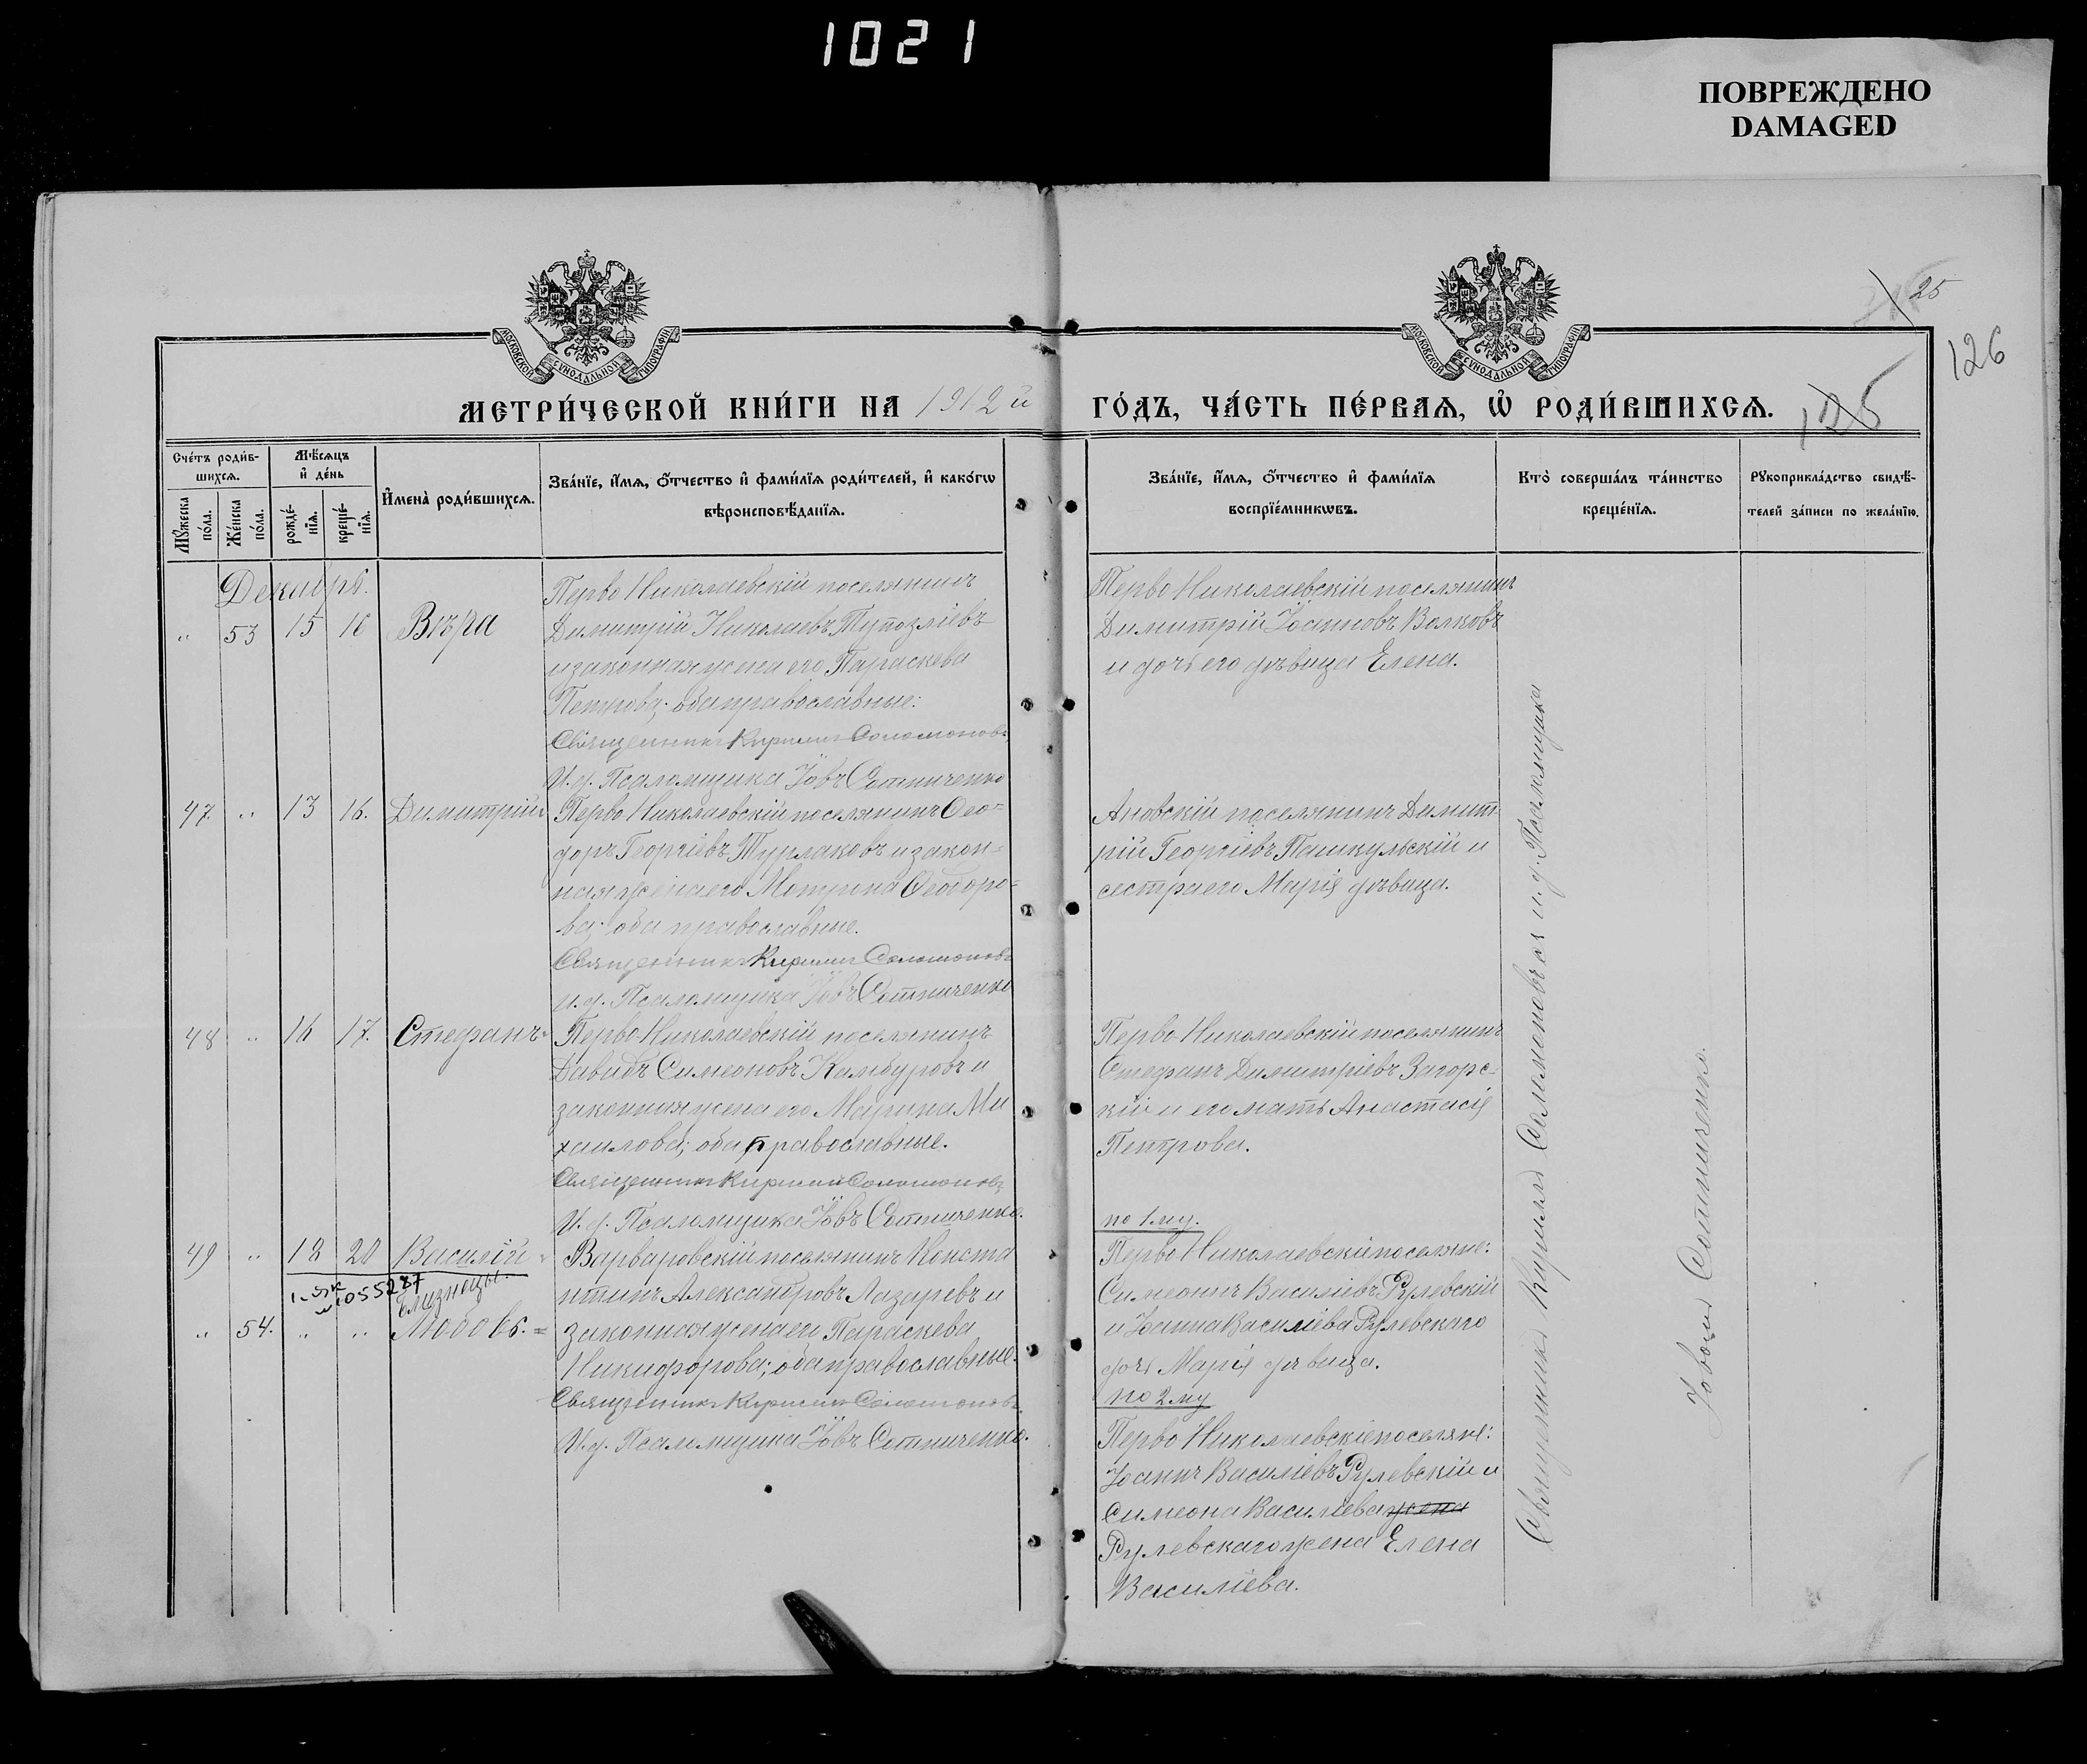 1021
ПОВРЕЖДЕНО
DAMAGED
МОСКОВСКОЙ СѴНОДАЛЬНОЙ ТИПОГРАФІИ
МОСКОВСКОЙ СѴНОДАЛЬНОЙ ТИПОГРАФІИ
25
126
125
МЕТРИ́ЧЕСКОЙ КНИ́ГИ НА 1912 й
ГО́ДЪ, ЧА́СТЬ ПЕ́РВАѦ, Ѡ҆ РОДИ́ВШИХСѦ.
Сче́тъ роди́в-
шихсѧ.
Мꙋ́жеска по́ла.
Же́нска по́ла.
Мѣ́сѧцъ
и҆ де́нь
рожде́-
нїѧ.
креще́-
нїѧ.
И҆мена̀ роди́вшихсѧ.
Зва́нїе, и҆́мѧ, ѻ҆́тчество и҆ фами́лїѧ роди́телей, и҆ како́гѡ
вѣроисповѣ́данїѧ.
Зва́нїе, и҆́мѧ, ѻ҆́тчество и҆ фами́лїѧ
воспрїе́мникѡвъ.
Кто̀ соверша́лъ та́инство
креще́нїѧ.
Рꙋкоприкла́дство свидѣ́-
телей за́писи по жела́нїю.
Декабрь.
" 53 15 16 Вѣра
Перво Николаевскій поселянинъ
Димитрій Николаевъ Тупозліевъ
и законная жена его Параскева
Петрова; оба православные:
Священникъ Кириллъ Соломоновъ
И.д. Псаломщика Іовъ Сотниченко
Перво Николаевскій поселянинъ
Димитрій Іоанновъ Волковъ
и дочь его дѣвица Елена.
47 " 13 16. Димитрій
Перво Николаевскій поселянинъ Ѳео=
доръ Георгіевъ Турлаковъ и закон=
ная жена его Матрина Ѳеодоро=
ва; оба православные.
Священникъ Кириллъ Соломоновъ
и.д. Псаломщика Іовъ Сотниченко
Ановскій поселянинъ Димит
рій Георгіевъ Пашкульскій и
сестра его Марія дѣвица.
48 " 16 17. Стефанъ
Перво Николаевскій поселянинъ
Давидъ Симеоновъ Камбуровъ и
законная жена его Марина Ми
хаилова; оба православные.
Священникъ Кириллъ Соломоновъ
И.д. Псаломщика Іовъ Сотниченко.
Перво Николаевскій поселянинъ
Стефанъ Димитріевъ Загорс-
кій и его мать Анастасія
Петрова.
49 " 18 20 Василій
055287
Близнецы.
" 54. " " Любовь. =
Варваровскій поселянинъ Конста
нтинъ Александровъ Лазаревъ и
законная жена его Параскева
Никифорова; оба православные.
Священникъ Кириллъ Соломоновъ
И.д. Псаломщика Іовъ Сотниченко.
по 1му.
Перво Николаевскіе поселяне:
Симеонъ Василіевъ Рулевскій
и Іоанна Василіева Рулевскаго
дочь Марія дѣвица.
по 2му
Перво Николаевскіе поселяне:
Іоаннъ Василіевъ Рулевскій и
Симеона Василіева жена
Рулевскаго жена Елена
Василіева.
Священникъ Кириллъ Соломоновъ съ и.д. Псаломщика
Іовомъ Сотниченко.